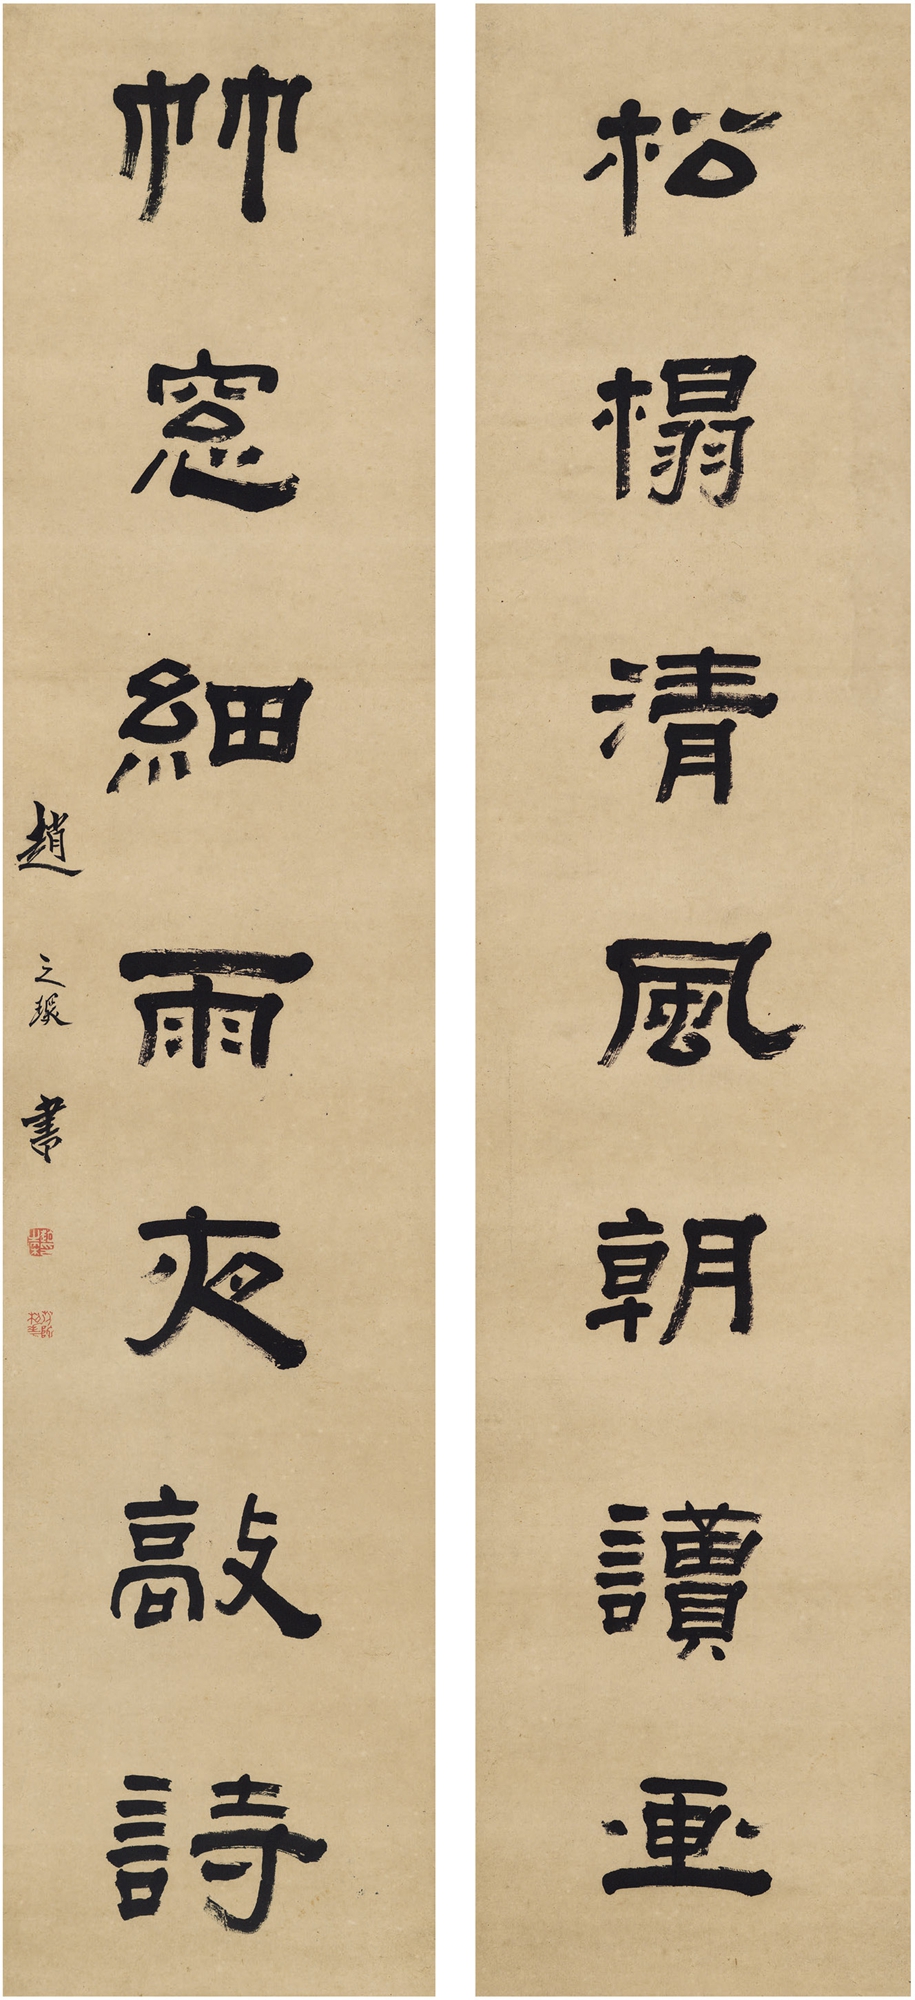 松榻清風朝讀画
竹窓細雨夜敲詩
趙之琛書